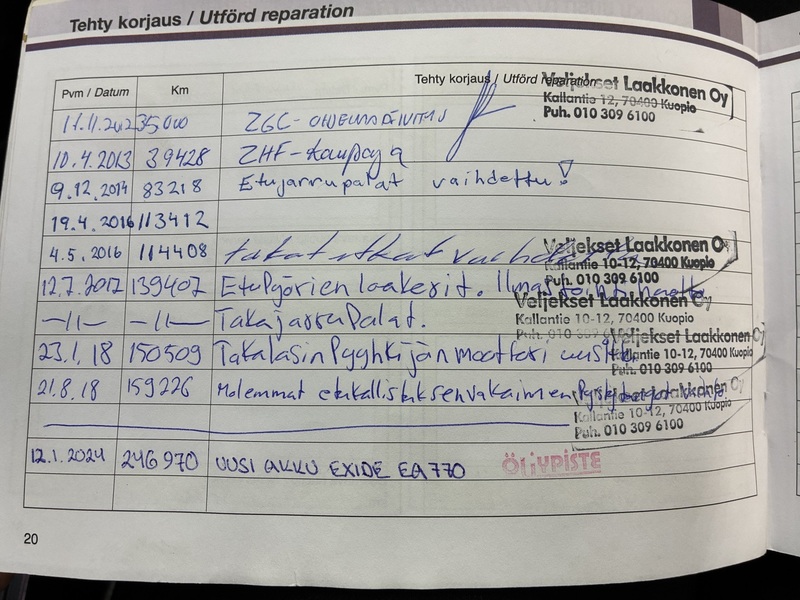 Tehty korjaus / Utförd reparation
Pvm / Datum Km Tehty korjaus / Utförd reparation
Veljekset Laakkonen Oy
Kallantie 12, 70400 Kuopio
Puh. 010 309 6100
35000 ZGC-
10.4.2013 39428 ZHF-kampanja
9.12.2014 83218 Etujarrupalat vaihdettu!
19.4.2016 113412
4.5.2016 114408 takaiskarit vaihdettu
Veljekset Laakkonen Oy
Kallantie 10-12, 70400 Kuopio
Puh. 010 309 6100
12.7.2017 139407 Etupyörien laakerit. Ilmastoinnin huolto
Veljekset Laakkonen Oy
Kallantie 10-12, 70400 Kuopio
Puh. 010 309 6100
-11- -11- Takajarrupalat.
Veljekset Laakkonen Oy
Kallantie 10-12, 70400 Kuopio
Puh. 010 309 6100
23.1.18 150509 Takalasinpyyhkijän moottori uusittu
21.8.18 159226 Molemmat etukallistuksenvakaimen
Veljekset Laakkonen Oy
Kallantie 10-12, 70400 Kuopio
Puh. 010 309 6100
12.1.2024 246970 UUSI AKKU EXIDE EA770 ÖLJYPISTE
20